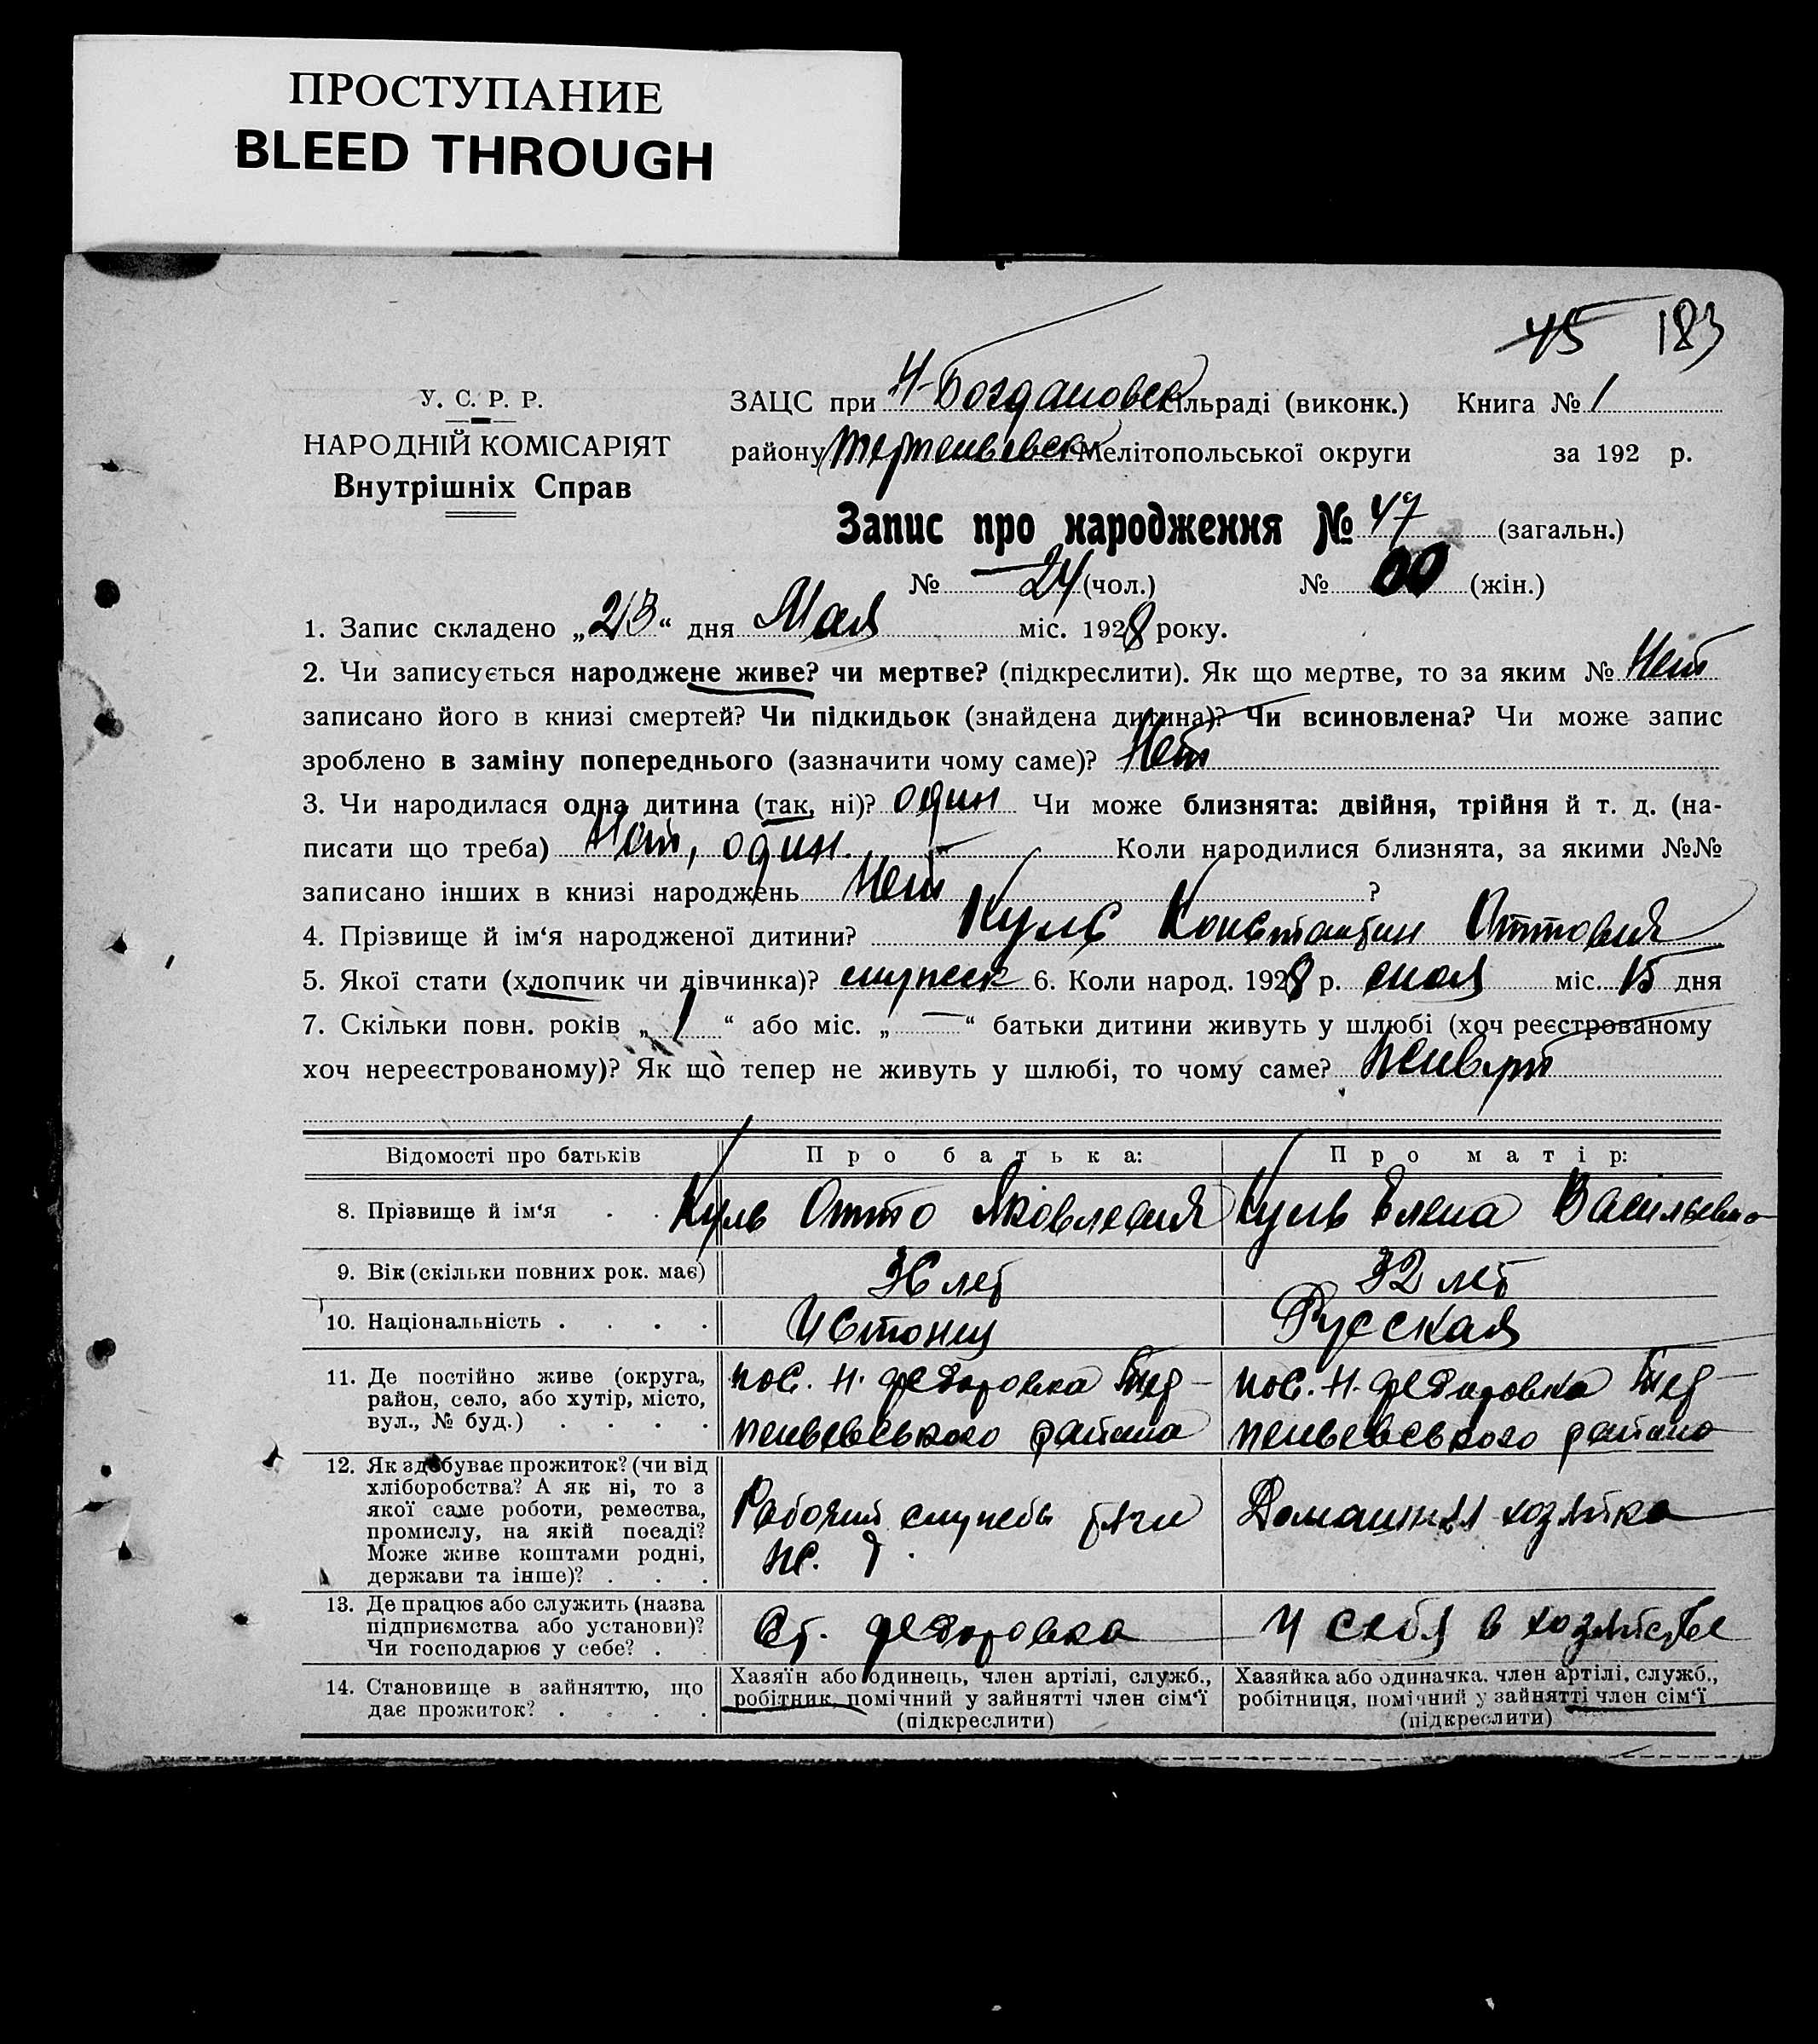 ПРОСТУПАНИЕ
BLEED THROUGH
45 183
У. С. Р. Р.
НАРОДНІЙ КОМІСАРІЯТ
Внутрішніх Справ
ЗАЦС при Н-Богдановск сільраді (виконк.) Книга № 1
району Терпеньевск Мелітопольської округи за 192 р.
Запис про народження № 47 (загальн.)
№ 24 (чол.) № (жін.)
1. Запис складено „23“ дня Мая міс. 1928 року.
2. Чи записується народжене живе? чи мертве? (підкреслити). Як що мертве, то за яким № Нет
записано його в книзі смертей? Чи підкидьок (знайдена дитина)? Чи всиновлена? Чи може запис
зроблено в заміну попереднього (зазначити чому саме)? Нет
3. Чи народилася одна дитина (так, ні)? один Чи може близнята: двійня, трійня й т. д. (на-
писати що треба) Нет, один. Коли народилися близнята, за якими №№
записано інших в книзі народжень Нет ?
4. Прізвище й ім‘я народженої дитини? Куль Константин Оттович
5. Якої стати (хлопчик чи дівчинка)? мужск 6. Коли народ. 1928 р. мая міс. 15 дня
7. Скільки повн. років „ 1 “ або міс. „ — “ батьки дитини живуть у шлюбі (хоч реєстрованому
хоч нереєстрованому)? Як що тепер не живуть у шлюбі, то чому саме? живут
Відомості про батьків Про батька: Про матір:
8. Прізвище й ім‘я . . Куль Отто Яковлевич Куль Елена Васильевна
9. Вік (скільки повних рок. має) 36 лет 32 лет
10. Національність . . . . Истонец Русская
11. Де постійно живе (округа,
район, село, або хутір, місто,
вул., № буд.) . . . .
пос. Н. Федоровка Тер-
пеньевського района
пос. Н. Федоровка Тер-
пеньевського района
12. Як здобуває прожиток? (чи від
хліборобства? А як ні, то з
якої саме роботи, ремества,
промислу, на якій посаді?
Може живе коштами родні,
держави та інше)? . . .
Рабочий службы тяги
ж. д.
Домашняя хозяйка
13. Де працює або служить (назва
підприємства або установи)?
Чи господарює у себе? . .
Ст. Федоровка
У себя в хозяйстве
14. Становище в зайняттю, що
дає прожиток? . . . .
Хазяїн або одинець, член артілі, служб.,
робітник, помічний у зайнятті член сім‘ї
(підкреслити)
Хазяйка або одиначка, член артілі, служб.,
робітниця, помічний у зайнятті член сім‘ї
(підкреслити)